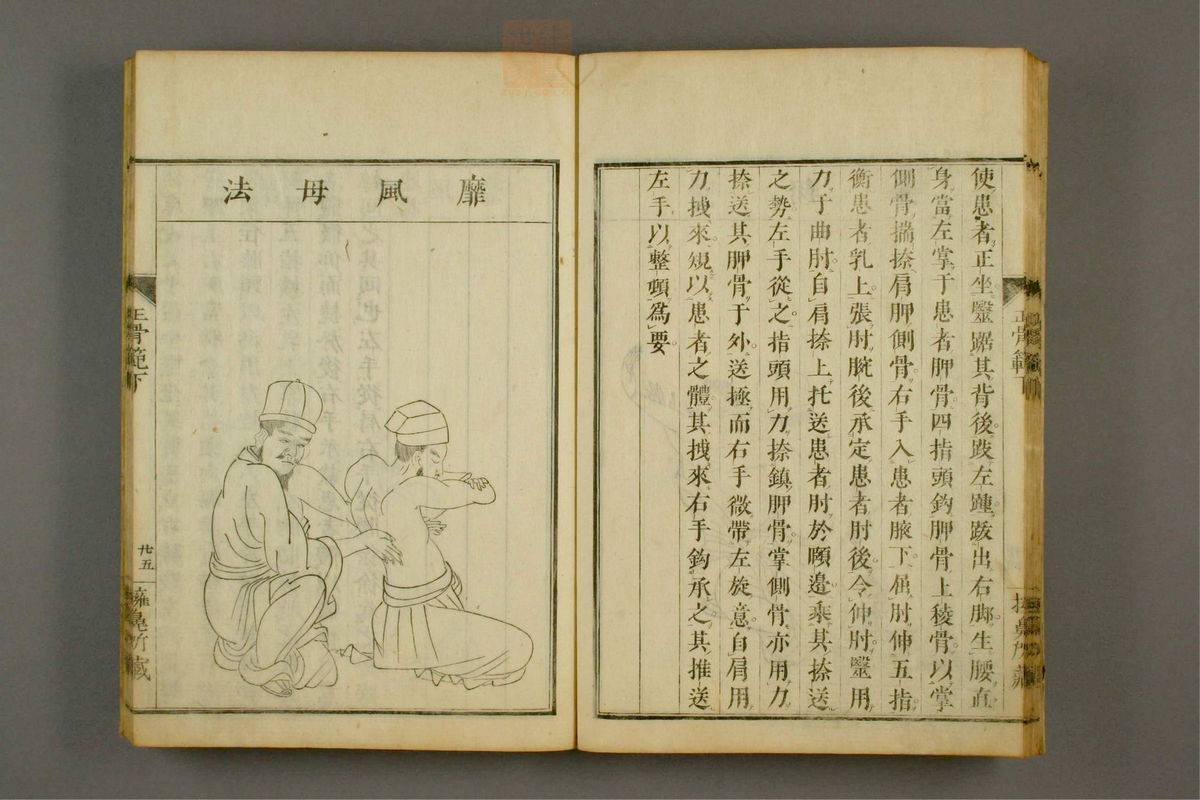 使患者正坐毉踞其背後跋左踵跋出右脚生腰直
身當左掌于患者胛骨四指頭鈎胛骨上稜骨以掌
側骨揣捺肩胛側骨右手入患者腋下屈肘伸五指
衡患者乳上張肘腕後承定患者肘後令伸肘毉用
力于曲肘自肩捺上托送患者肘於頤邊乘其捺送
之勢左手從之指頭用力捺鎮胛骨掌側骨亦用力
捺送其胛骨于外送極而右手微帶左旋意自肩用
力拽來規以患者之體其拽來右手鈎承之其推送
左手以整頓爲要
靡風母法
正骨範下
廿五